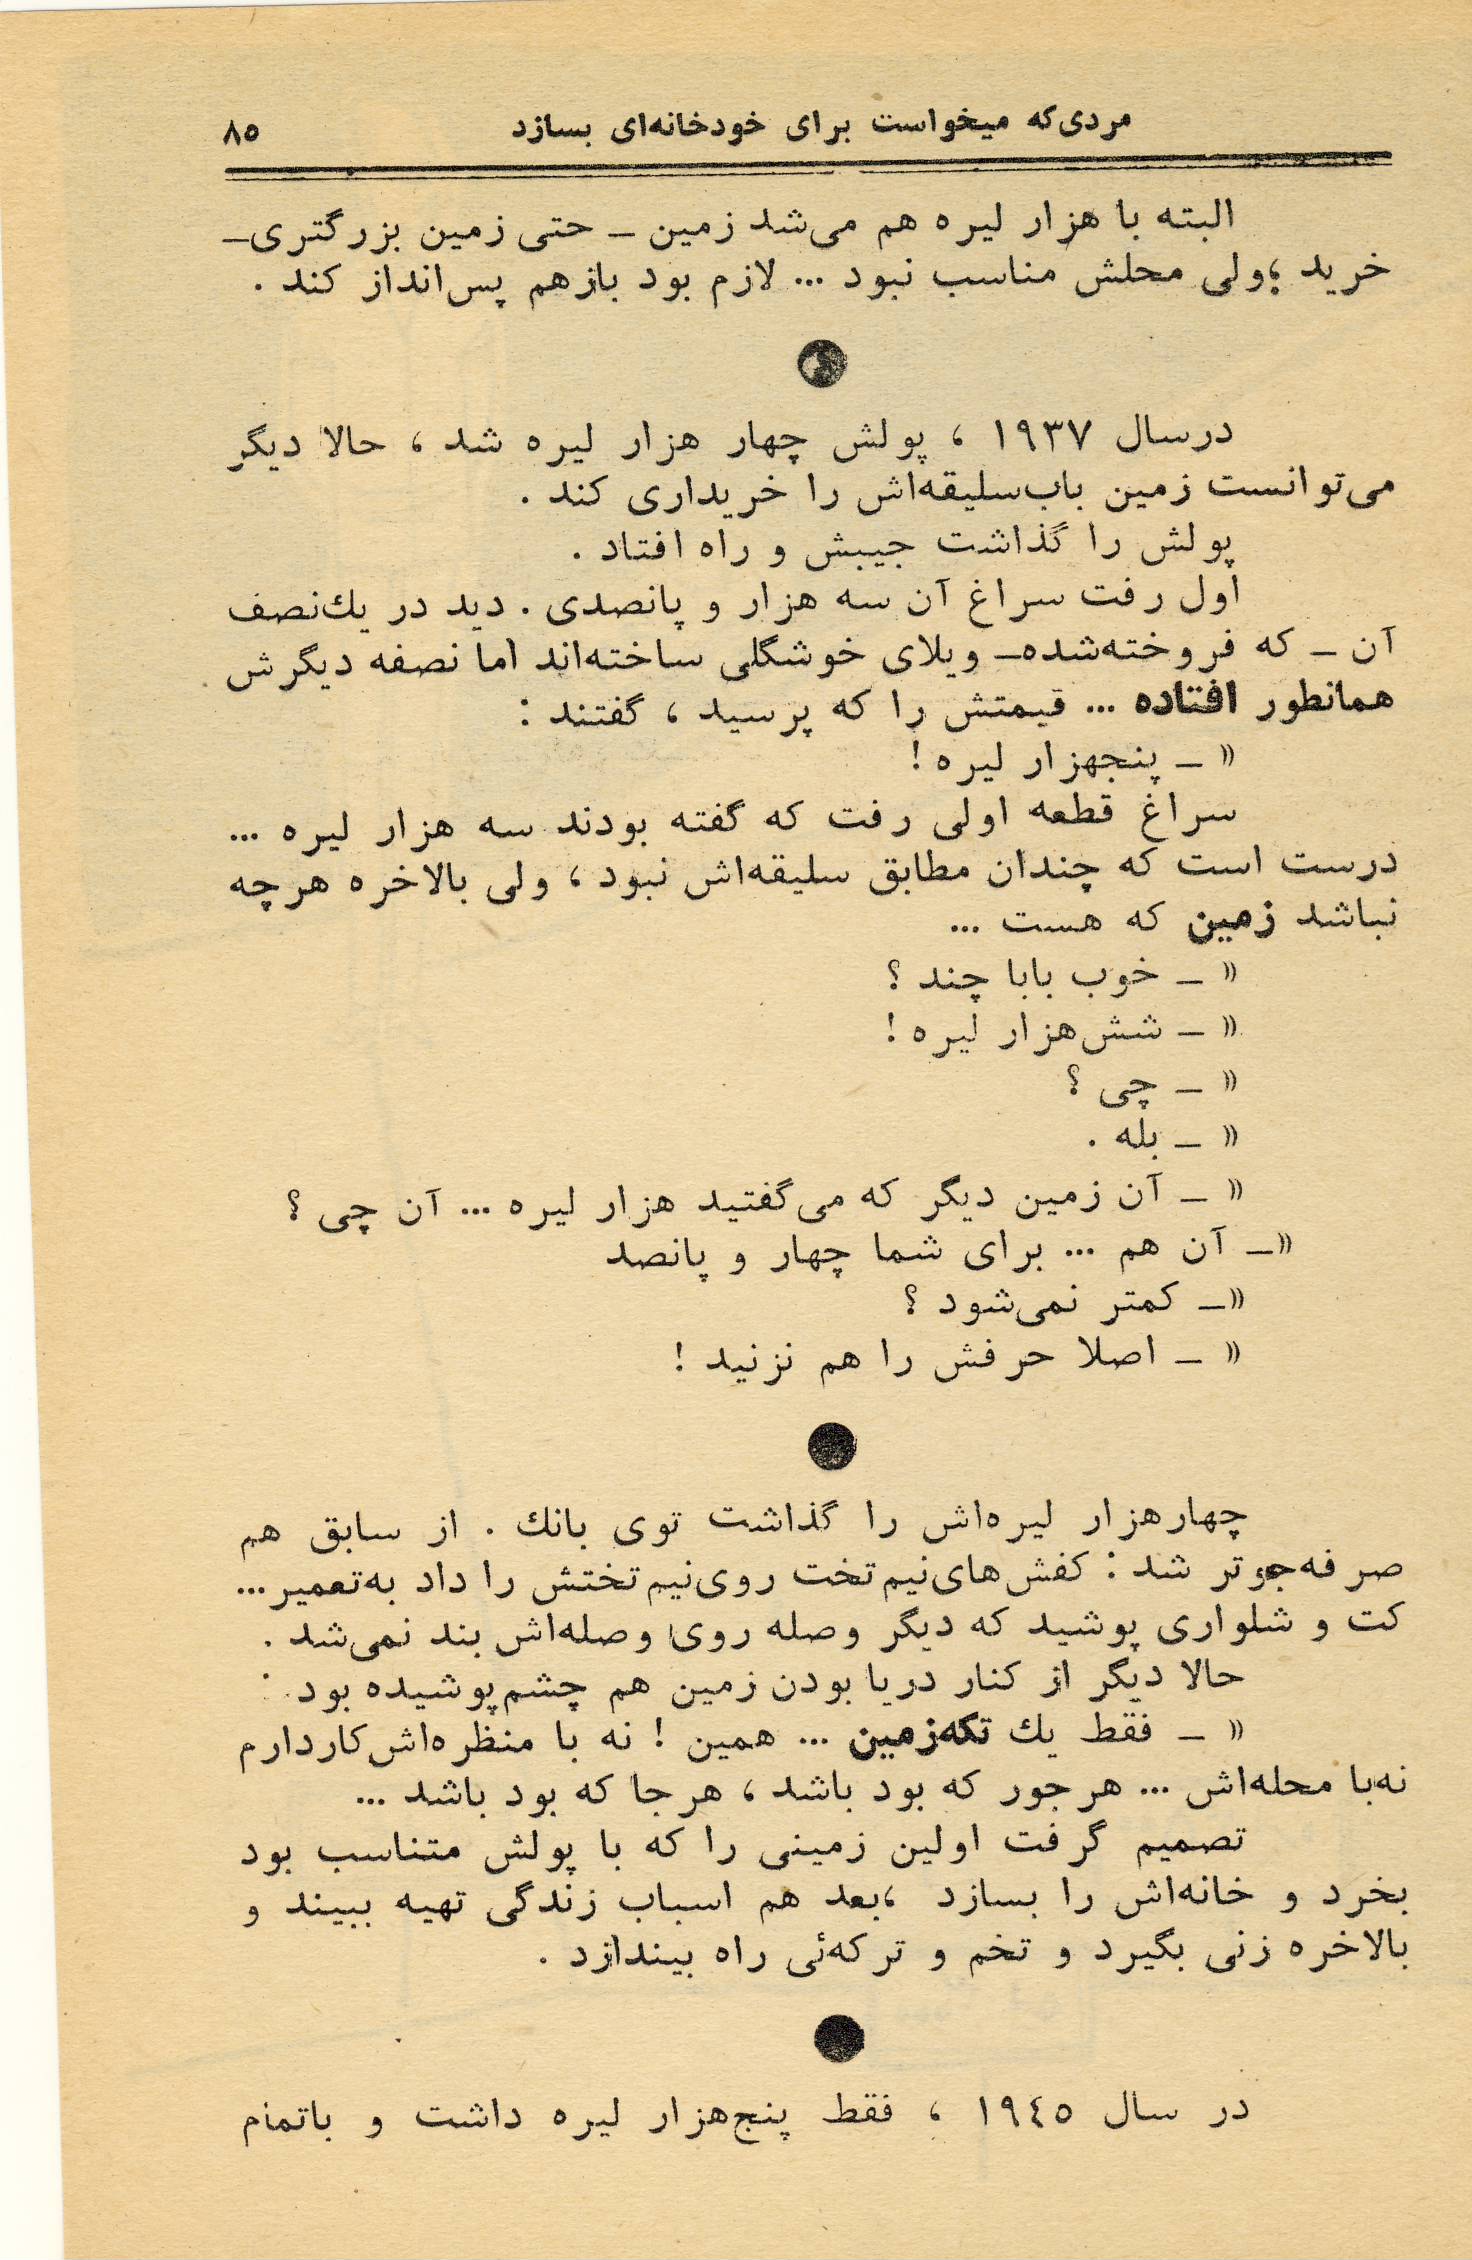 مردی‌که میخواست برای خودخانه‌ای بسازد
۸۵
البته با هزار لیره هم می‌شد زمین ـ حتی زمین بزرگتری ـ
خرید ؛ولی محلش مناسب نبود ... لازم بود بازهم پس‌انداز کند .
درسال ۱۹۳۷ ، پولش چهار هزار لیره شد ، حالا دیگر
می‌توانست زمین باب‌سلیقه‌اش را خریداری کند .
پولش را گذاشت جیبش و راه افتاد .
اول رفت سراغ آن سه هزار و پانصدی . دید در یك‌نصف
آن ـ که فروخته‌شده ـ ویلای خوشگلی ساخته‌اند اما نصفه دیگرش
همانطور افتاده ... قیمتش را که پرسید ، گفتند :
« ـ پنجهزار لیره !
سراغ قطعه اولی رفت که گفته بودند سه هزار لیره ...
درست است که چندان مطابق سلیقه‌اش نبود ، ولی بالاخره هرچه
نباشد زمین که هست ...
« ـ خوب بابا چند ؟
« ـ شش‌هزار لیره !
« ـ چی ؟
« ـ بله .
« ـ آن زمین دیگر که می‌گفتید هزار لیره ... آن چی ؟
«ـ آن هم ... برای شما چهار و پانصد
«ـ کمتر نمی‌شود ؟
« ـ اصلا حرفش را هم نزنید !
چهارهزار لیره‌اش را گذاشت توی بانك . از سابق هم
صرفه‌جوتر شد : کفش‌های‌نیم‌تخت روی‌نیم‌تختش را داد به‌تعمیر...
کت و شلواری پوشید که دیگر وصله روی وصله‌اش بند نمی‌شد .
حالا دیگر از کنار دریا بودن زمین هم چشم‌پوشیده بود :
« ـ فقط یك تکه‌زمین ... همین ! نه با منظره‌اش‌کاردارم
نه‌با محله‌اش ... هرجور که بود باشد ، هرجا که بود باشد ...
تصمیم گرفت اولین زمینی را که با پولش متناسب بود
بخرد و خانه‌اش را بسازد ،بعد هم اسباب زندگی تهیه ببیند و
بالاخره زنی بگیرد و تخم و ترکه‌ئی راه بیندازد .
در سال ۱۹٤۵ ، فقط پنج‌هزار لیره داشت و باتمام